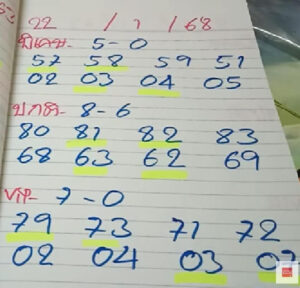 22 / 1 / 68
พิเศษ 5-0
57 58 59 51
02 03 04 05
ปกติ 8-6
80 81 82 83
68 63 62 69
VIP- 7-0
79 73 71 72
02 04 03